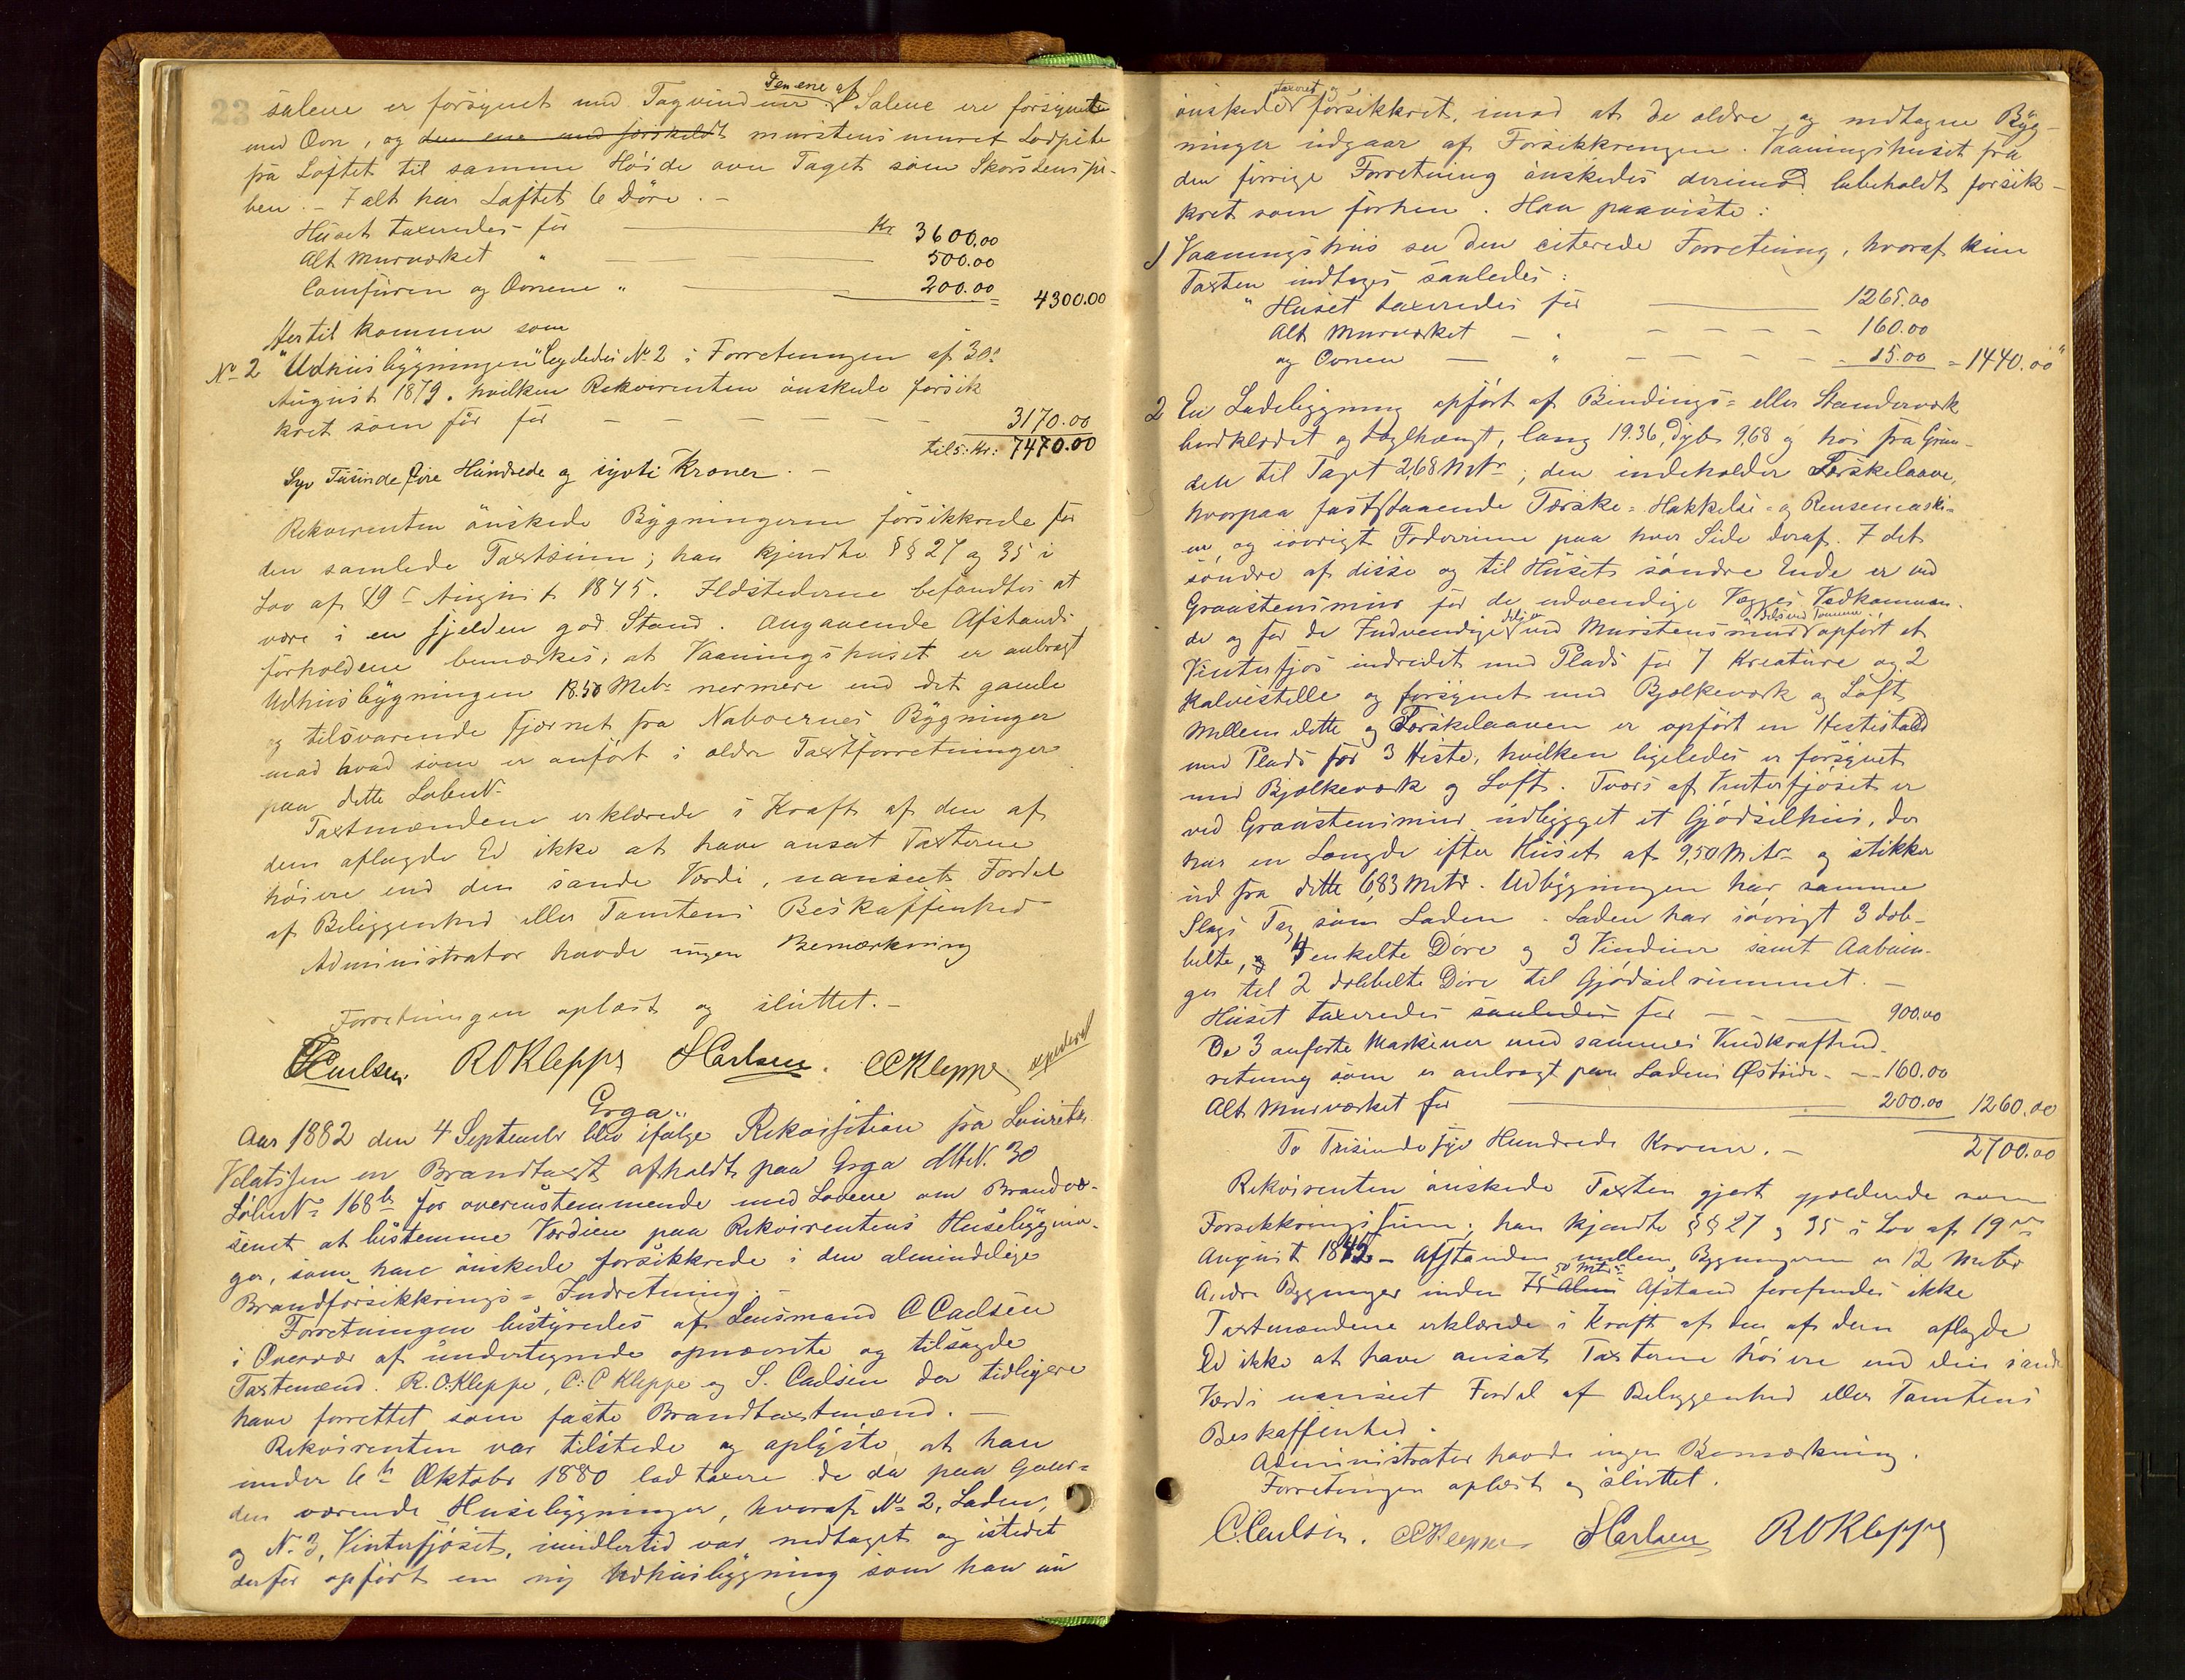 23
salene er forsynet med Tagvinduer Den ene af Salene ere forsynet
med Ovn, og den ene med forskeldt murstens muret Lodpibe
på Loftet til samme Høide over Taget som Skorstenspi-
ben. - I alt har Loftet 6 Døre. -
Huset taxeredes for Kr. 3600.00
Alt Murværket " 500.00
Comfuren og Ovnene " 200.00 = 4300.00
Hertil kommer som
No 2 "Udhusbygningen" ligeledes No 2 i Forretningen af 30te
August 1879. hvilken Rekvirenten ønskede forsik
kret som før for - - - - 3170.00
tils. Kr: 7470.00
Syv Tusinde fire Hundrede og sytti Kroner. -
Rekvirenten ønskede Bygningerne forsikkrede for
den samlede Taxtsum; han kjendte §§ 27 og 35 i
Lov af 19de August 1845. Ildstederne befandtes at
være i en sjelden god Stand. Angaaende Afstands
forholdene bemærkes, at Vaaningshuset er anbragt
Udhusbygningen 18.50 Metr nærmere end det gamle
og tilsvarende fjærnet fra Naboernes Bygninger
mod hvad som er anført i ældre Taxtforretninger
paa dette LøbeN.
Taxtmændene erklærede i Kraft af den af
dem aflagde Ed ikke at have ansat Taxterne
høiere end den sande Værdi, uanseet Fordel
af Beliggenhed eller Tomtens Beskaffenhed
Administrator havde ingen Bemærkning
Forretningen oplæst og sluttet. -
C Carlsen. R O Kleppe S Carlsen. C C Kleppe
expederet
Erga..
Aar 1882 den 4 September blev ifølge Rekvisition fra Lauritz
en Brandtaxt afholdt paa Erga MN. 30
LøbeNo 168b for overenstemmende med Lovene om Brandvæ-
senet at bestemme Værdien paa Rekvirentens Husebygnin-
ger, som han ønskede forsikkrede i den almindelige
Brandforsikkrings-Indretning. -
Forretningen bestyredes af Lensmand C Carlsen
i Overvær af undertegnede opnævnte og tilsagde
Taxtmænd. R. O. Kleppe, C: C Kleppe og S. Carlsen der tidligere
have forrettet som faste Brandtaxtmænd. -
Rekvirenten var tilstede og oplyste, at han
under 6te Oktober 1880 lod taxere de da paa Gaar-
den værende Husebygninger, hvoraf No 2, Laden,
og N. 3, Vinterfjøset, imidlertid var nedtaget og istedet
derfor opført en ny Udhusbygning som han nu
ønskede taxeret og forsikkret, imod at de ældre og nedtagne Byg-
ninger udgaar af Forsikkringen. Vaaningshuset fra
den forrige Forretning ønskedes derimod bibeholdt forsik-
kret som forhen. Han paaviste:
1 Vaaningshus se den citerede Forretning, hvoraf kun
Taxten indtages saaledes:
" Huset taxeredes for 1265.00
Alt Murværket - " - - - 160.00
og Ovnen - " - - - 15.00 = 1440.00"
2 En Ladebygning opført af Bindings- eller Standerværk
bordklædet og taglhængt, lang 19.36, Dyb 9,68 og høi fra Grun-
den til Taget 2,68 Metr; den indeholder Tærskelaave,
hvorpaa faststaaende Tærske- Hakkelse- og Rensemaski-
ner, og iøvrigt Foderrum paa hver Side deraf. I det
søndre af disse og til Husets søndre Ende er ved
Graastensmur for de udvendige Vægges Vedkommen-
de og for de Indvendige delvis ved Murstensmur dels ved Tømmer opført et
Vinterfjøs indredet med Plads for 7 Kreature og 2
Kalvestelle og forsynet med Bjælkeværk og Loft
Mellem dette og Tærskelaaven er opført en Hestestald
med Plads for 3 Heste, hvilken ligeledes er forsynet
med Bjælkeværk og Loft. Tværs af Vinterfjøset er
ved Graastensmur udbygget et Gjødselhus, der
har en Længde efter Huset af 9,50 Metr og stikker
ud fra dette 6,83 Metr. Udbygningen har samme
Slags Tag som Laden. Laden har iøvrigt 3 dob-
belte, og 4 enkelte Døre og 3 Vinduer samt Aabnin-
ger til 2 dobbelte Døre til Gjødselrummet. -
Huset taxeredes saaledes for - - 900.00
De 3 anførte Maskiner med sammes Vindkraftind-
retning som er anbragt paa Ladens Østside - 160.00
Alt Murværket for 200.00 1260.00
To Tusinde syv Hundrede Kroner. - 2700.00
Rekvirenten ønskede Taxten gjort gjældende som
Forsikkringssum; han kjendte §§ 27 og 35 i Lov af 19de
August 1845. - Afstanden mellem Bygningerne er 12 Meter
Andre Bygninger inden 75 Alen 50 Metr Afstand forefindes ikke
Taxtmændene erklærede i Kraft af den af dem aflagde
Ed ikke at have ansat Taxterne høiere end den sande
Værdi uanseet Fordel af Beliggenhed eller Tomtens
Beskaffenhed.
Administrator havde ingen Bemærkning.
Forretningen oplæst og sluttet.
C. Carlsen. C C Kleppe S Carlsen R O Kleppe